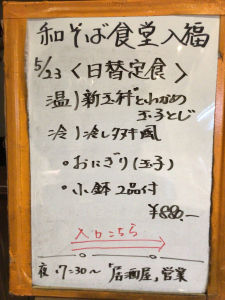 和そば食堂入福
5/23〈日替定食〉
温)新玉ネギとわかめ
玉子とじ
冷)冷しタヌキ風
・おにぎり(玉子)
・小鉢2品付
¥880.-
入口こちら
夜・7:30〜「居酒屋」営業